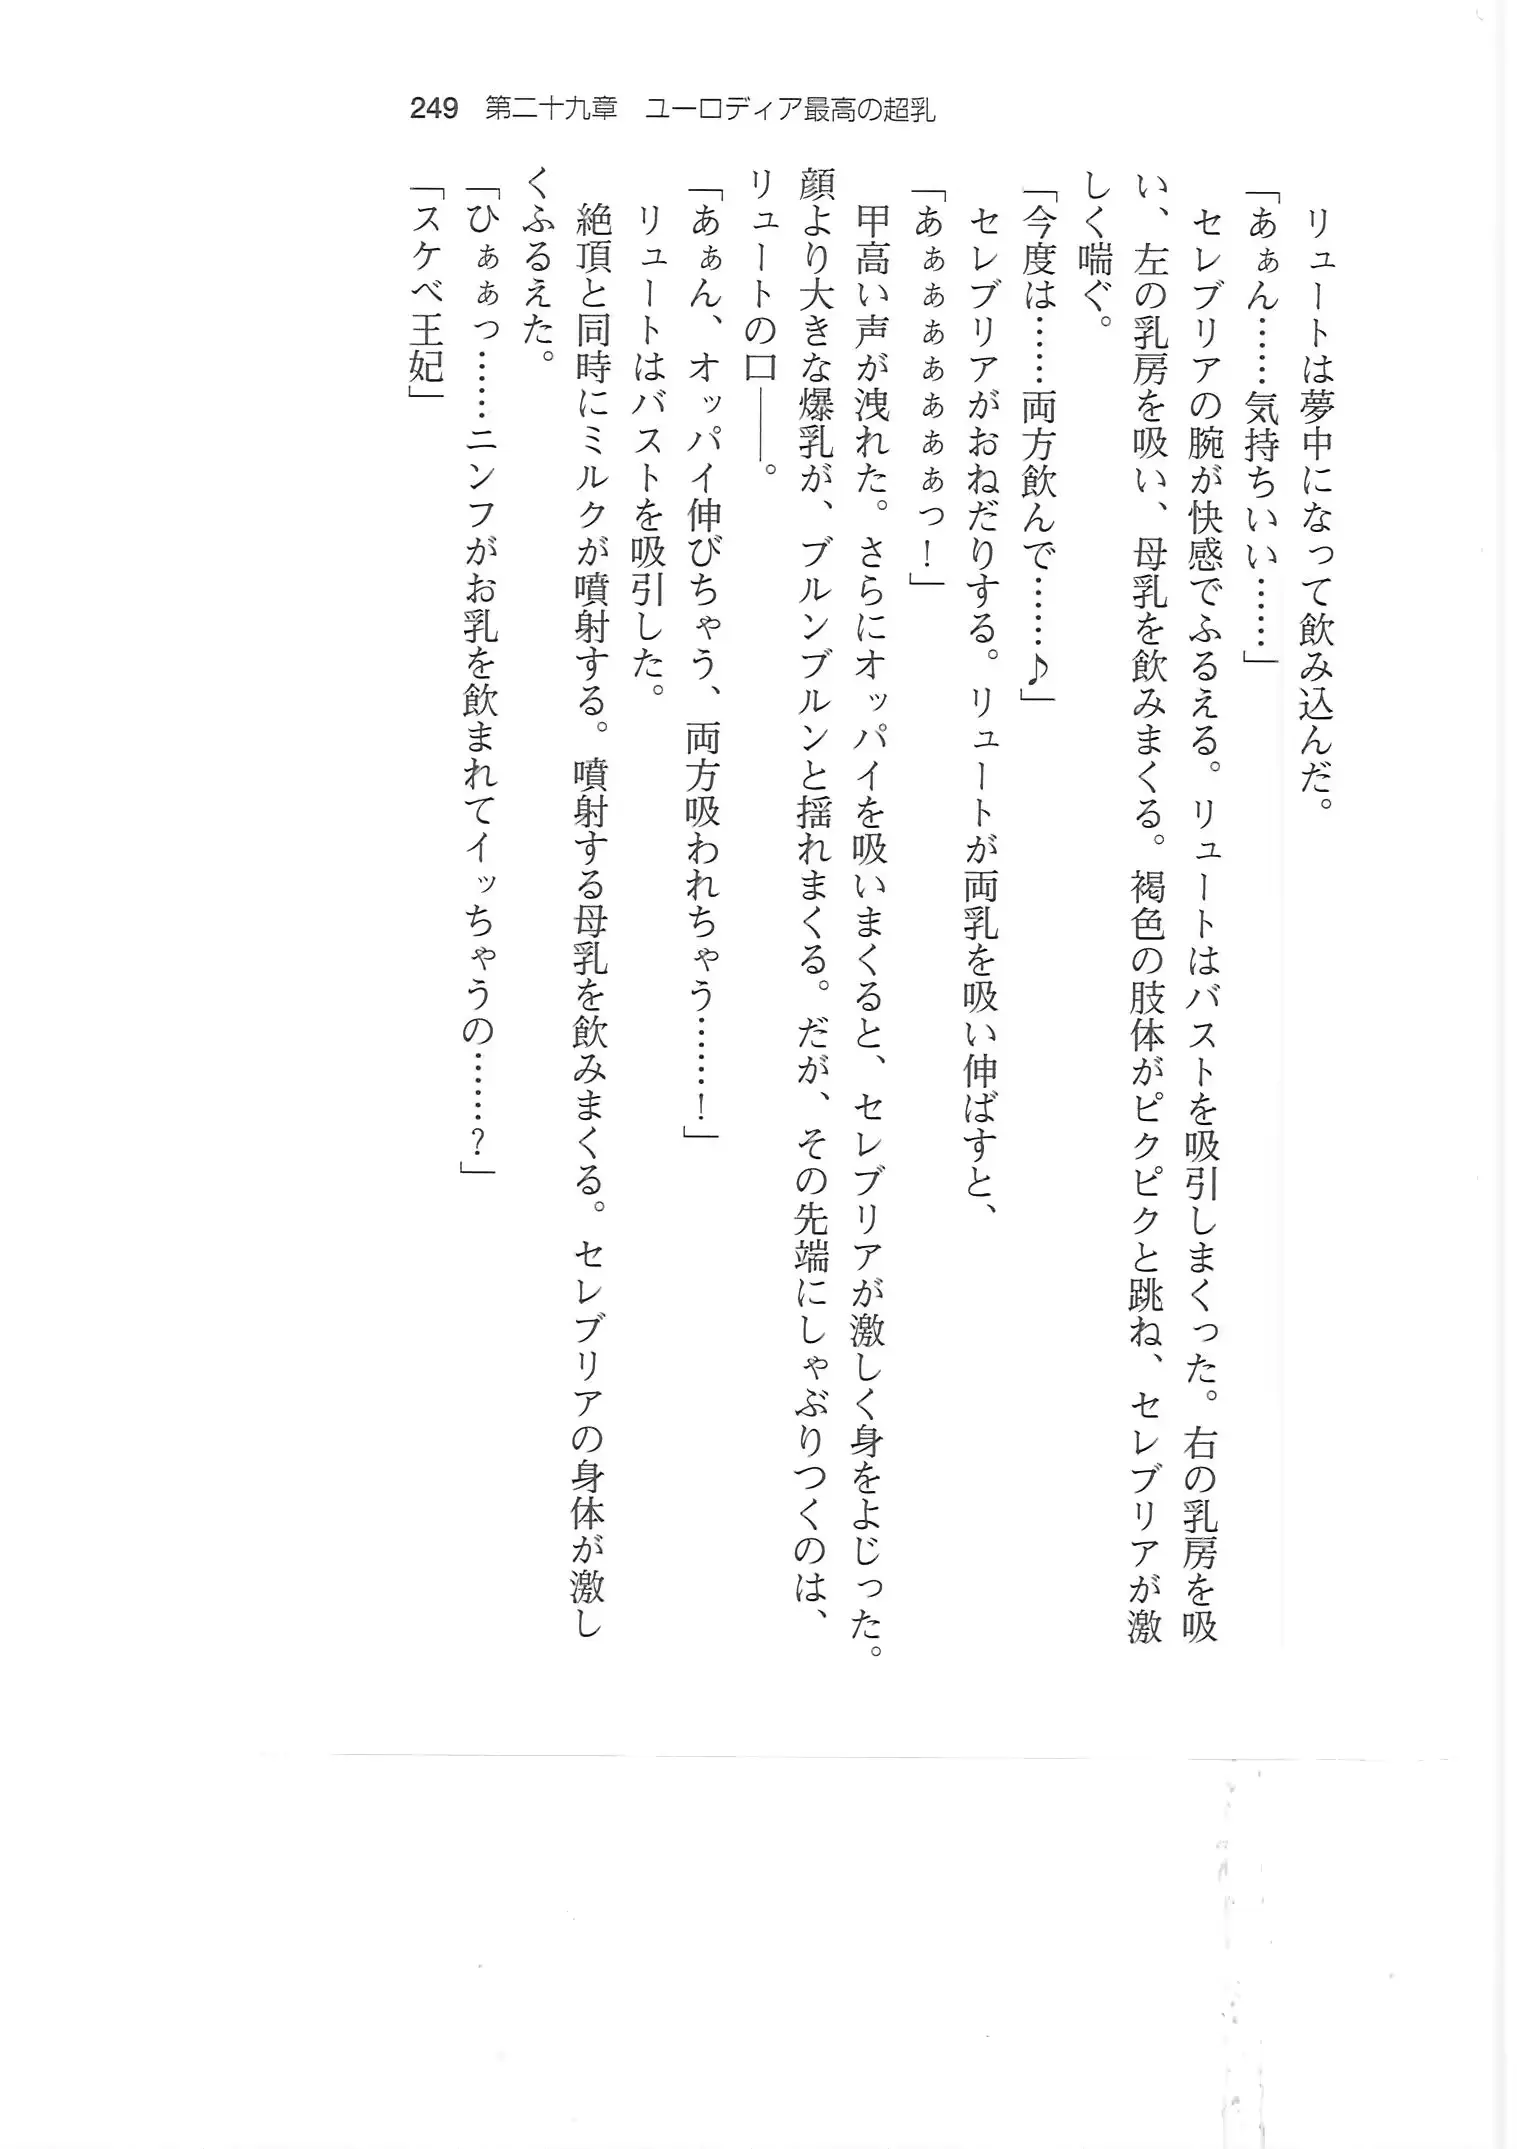 249 第二十九章 ユーロディア最高の超乳
リュートは夢中になって飲み込んだ。
「あぁん……気持ちいい……」
セレブリアの腕が快感でふるえる。リュートはバストを吸引しまくった。右の乳房を吸
い、左の乳房を吸い、母乳を飲みまくる。褐色の肢体がピクピクと跳ね、セレブリアが激
しく喘ぐ。
「今度は……両方飲んで……♪」
セレブリアがおねだりする。リュートが両乳を吸い伸ばすと、
「あぁぁぁぁぁぁぁっ！」
甲高い声が洩れた。さらにオッパイを吸いまくると、セレブリアが激しく身をよじった。
顔より大きな爆乳が、ブルンブルンと揺れまくる。だが、その先端にしゃぶりつくのは、
リュートの口――。
「あぁん、オッパイ伸びちゃう、両方吸われちゃう……！」
リュートはバストを吸引した。
絶頂と同時にミルクが噴射する。噴射する母乳を飲みまくる。セレブリアの身体が激し
くふるえた。
「ひぁぁっ……ニンフがお乳を飲まれてイッちゃうの……？」
「スケベ王妃」